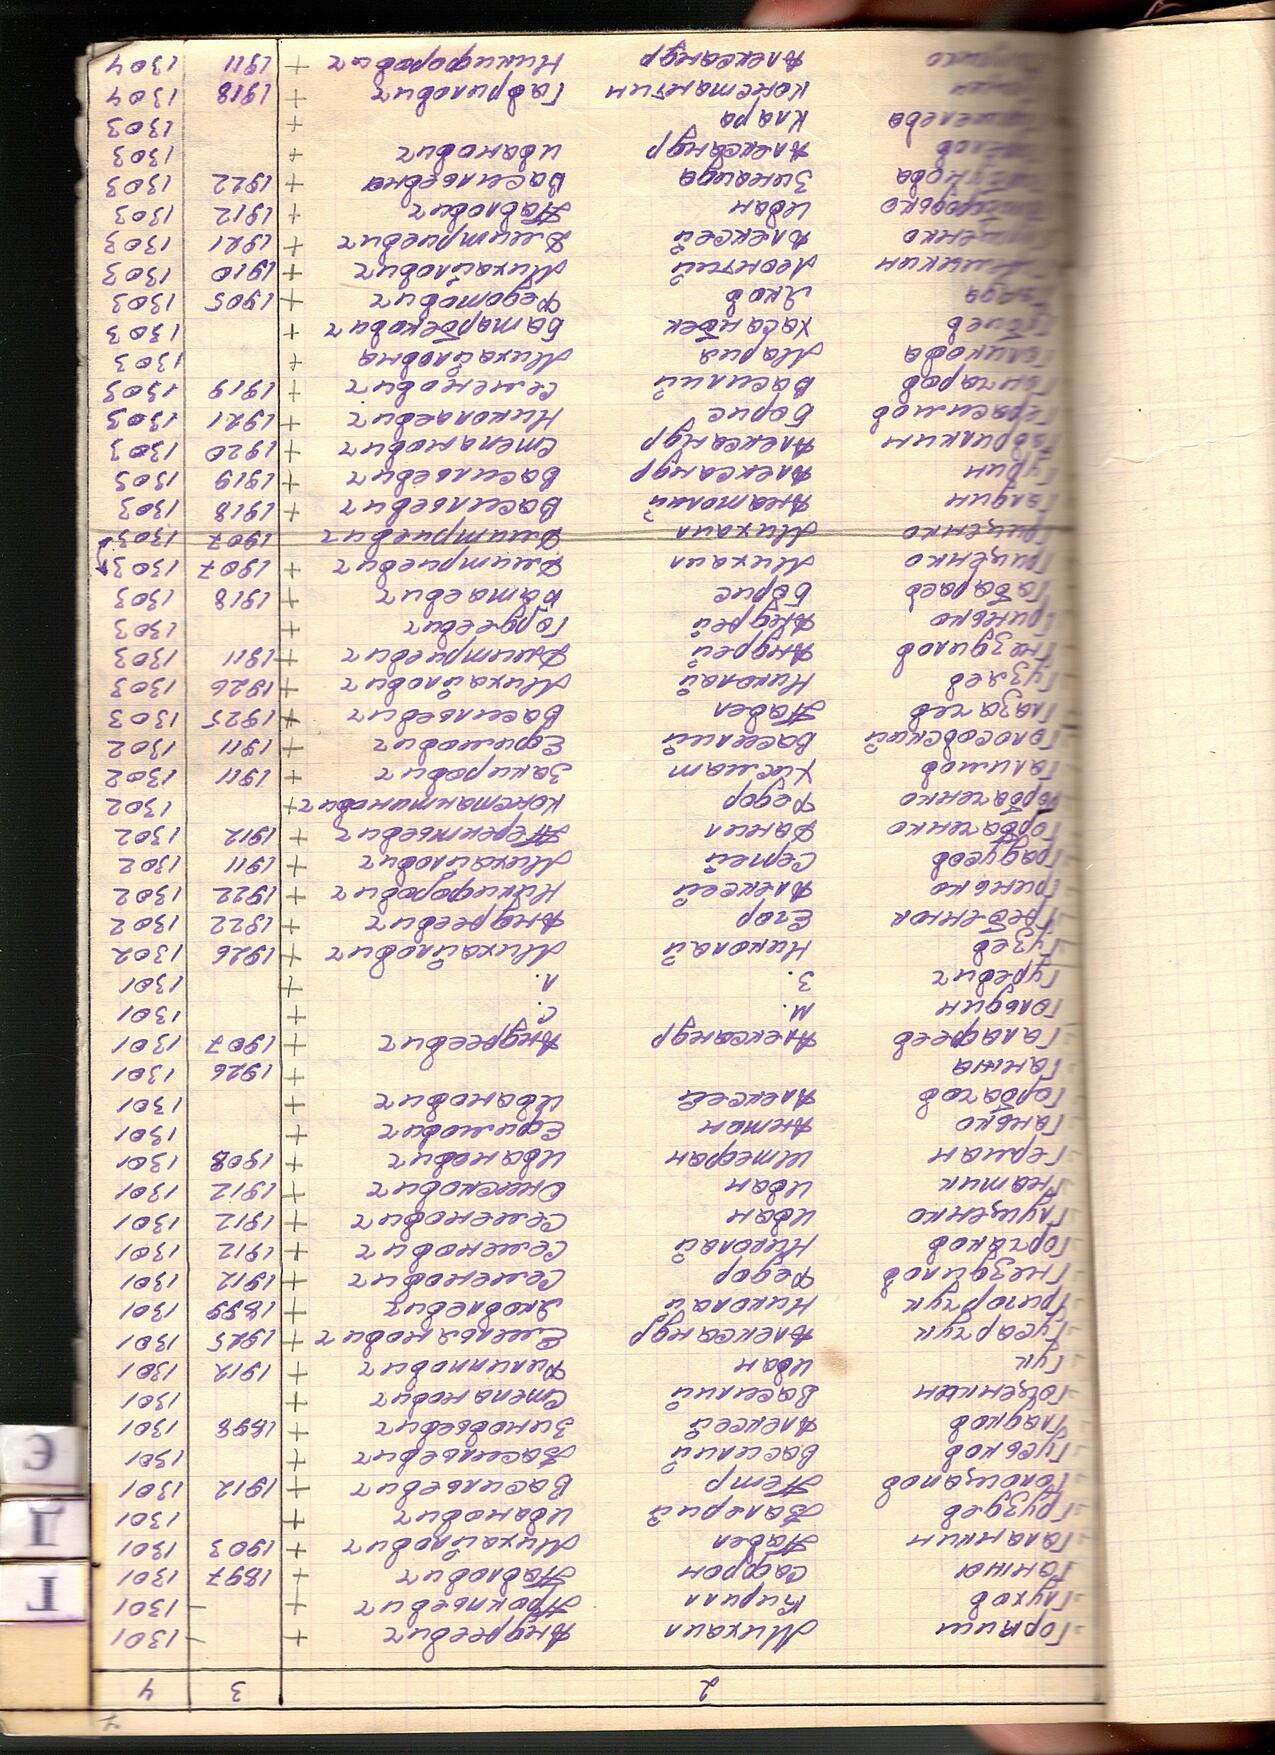 2 3 4
Горпиш Михаил Андреевич + - 1301
Глухов Кирилл Прокпьевич + - 1301
Ганжа Сафрон Павлович + 1897 1301
Галанкин Павел Михайлович + 1903 1301
Груздев Валерий Иванович + 1301
Голощапов Петр Васильевич + 1912 1301
Гуськов Василий Васильевич + 1301
Гладков Алексей Зиновьевич + 1898 1301
Гоценкин Василий Степанович + 1301
Гук Иван Филиппович + 1912 1301
Гусарчук Александр Емельянович + 1925 1301
Григорчук Николай Яковлевич + 1899 1301
Гнездилов Федор Семенович + 1912 1301
Горчаков Николай Семенович + 1912 1301
Глущенко Иван Семенович + 1912 1301
Гнатик Иван + 1912 1301
Герман Штефан Иванович + 1908 1301
Ганько Антон Ефимович + 1301
Горбачов Алексей Иванович 1301
Ганжа + 1926 1301
Галафеев Александр Андреевич + 1907 1301
Гольдин М. С. + 1301
Гуревич З. Л. + 1301
Гузев Николай Михайлович + 1926 1302
Гребенюк Егор Андреевич + 1922 1302
Гринько Алексей Никифорович + 1922 1302
Градусов Сергей Михайлович + 1911 1302
Горбаченко Данил Терентьевич + 1912 1302
Горбаченко Федор Константинович + 1302
Галимов Хисмат Закирович + 1911 1302
Голосовский Василий Ефимович + 1911 1302
Глазачев Павел Васильевич + 1925 1303
Гузяев Николай Михайлович + 1926 1303
Гнездилов Андрей Дмитриевич + 1911 1303
Гринько Андрей Гордеевич + 1303
Габараев Борис + 1918 1303
Гриценко Михаил Дмитриевич + 1907 1303
Гриценко Михаил Дмитриевич 1907 1303
Галдин Анатолий Васильевич + 1918 1303
Гурин Александр Васильевич + 1919 1303
Гаврилкин Александр Степанович + 1920 1303
Герасимов Борис Николаевич + 1921 1303
Гончаров Василий Семенович + 1919 1303
Галикова Мария Михайловна + 1303
Хасанбек Батарбекович + 1303
Яков Федотович + 1905 1303
Леонтий Михайлович + 1910 1303
Алексей Дмитриевич + 1921 1303
Иван Павлович + 1912 1303
Зинаида Васильевна + 1922 1303
Александр Иванович + 1303
Клара + 1303
Константин Гаврилович + 1918 1304
Александр Никифорович + 1911 1304
Г
Д
Э